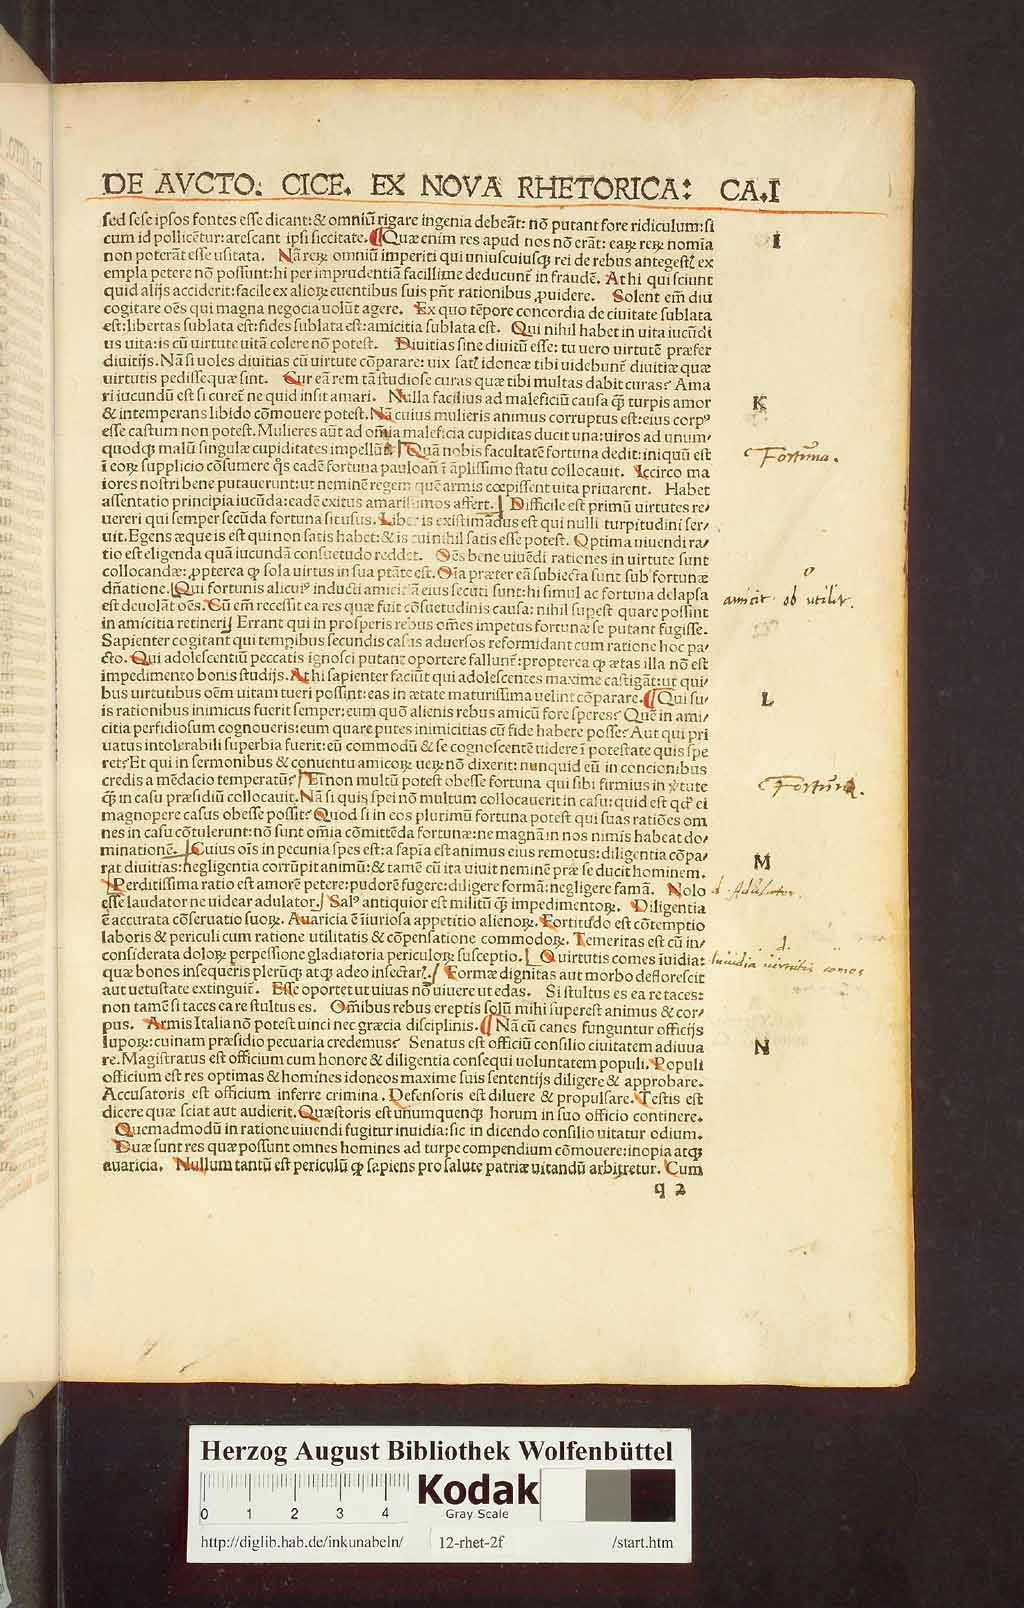 DE AVCTO. CICE. EX NOVA RHETORICA: CA.I
sed sese ipsos fontes esse dicant: & omniū rigare ingenia debeāt: nō putant fore ridiculum: si
cum id pollicētur: arescant ipsi siccitate. ¶ Quæ enim res apud nos nō erāt: eaꝝ reꝝ nomīa
I
non poterāt esse usitata. Nā reꝝ omniū imperiti qui uniuscuiusqꝫ rei de rebus ante gestꝭ ex
empla petere nō possunt: hi per imprudentiā facillime deducunt̄ in fraudē. At hi qui sciunt
quid alijs acciderit: facile ex alioꝝ euentibus suis pn̄t rationibus ꝓuidere. Solent em̄ diu
cogitare oēs qui magna negocia uolūt agere. Ex quo tēpore concordia de ciuitate sublata
est: libertas sublata est: fides sublata est: amicitia sublata est. Qui nihil habet in uita iucūdi
us uita: is cū uirtute uitā colere nō potest. Diuitias sine diuitū esse: tu uero uirtutē præfer
diuitijs. Nā si uoles diuitias cū uirtute cōparare: uix satꝭ idoneæ tibi uidebunt̄ diuitiæ quæ
uirtutis pedissequæ sint. Cur eā rem tā studiose curas quæ tibi multas dabit curas? Ama
ri iucundū est si curet̄ ne quid insit amari. Nulla facilius ad maleficiū causa ꝙ̄ turpis amor
K
& intemperans libido cōmouere potest. Nā cuius mulieris animus corruptus est: eius corpꝰ
esse castum non potest. Mulieres aūt ad om̄ia maleficia cupiditas ducit una: uiros ad unum/
quodqꝫ malū singulæ cupiditates impellūt. Quā nobis facultatē fortuna dedit: iniquū est
Fortūna.
ī eoꝝ supplicio cōsumere q̄s eadē fortuna paulo an̄ ī āplissimo statu collocauit. Iccirco ma
iores nostri bene putauerunt: ut neminē regem quē armis cœpissent uita priuarent. Habet
assentatio principia iucūda: eadē exitus amarissimos affert. Difficile est primū uirtutes re/
uereri qui semper secūda fortuna sit usus. Liber is existimādus est qui nulli turpitudini ser/
uit. Egens æque is est qui non satis habet: & is cui nihil satis esse potest. Optima uiuendi ra/
tio est eligenda quā iucundā consuetudo reddet. Oēs bene uiuēdi rationes in uirtute sunt
collocandæ: ꝓpterea ꝙ sola uirtus in sua ptāte est. Oīa præter eā subiecta sunt sub fortunæ
dn̄atione. Qui fortunis alicuiꝰ inducti amicitiā eius secuti sunt: hi simul ac fortuna delapsa
amicit. ob utilit.
est deuolāt oēs. Cū em̄ recessit ea res quæ fuit cōsuetudinis causa: nihil supest quare possint
in amicitia retineri Errant qui in prosperis rebus om̄es impetus fortunæ se putant fugisse.
Sapienter cogitant qui temporibus secundis casus aduersos reformidant cum ratione hoc pa/
cto. Qui adolescentium peccatis ignosci putant oportere fallunt̄: propterea ꝙ ætas illa nō est
impedimento bonis studijs. At hi sapienter faciūt qui adolescentes maxime castigāt: ut qui/
bus uirtutibus oēm uitam tueri possint: eas in ætate maturissima uelint cōparare. ¶ Qui su/
L
is rationibus inimicus fuerit semper: eum quō alienis rebus amicū fore speres? Quē in ami/
citia perfidiosum cognoueris: eum quare putes inimicitias cū fide habere posse? Aut qui pri
uatus intolerabili superbia fuerit: eū commodū & se cognoscentē uidere ī potestate quis spe
ret? Et qui in sermonibus & conuentu amicoꝝ ueꝝ nō dixerit: nunquid eū in concionibus
credis a mēdacio temperatū? Ei non multū potest obesse fortuna qui sibi firmius in v̄tute
Fortuna.
ꝙ̄ in casu præsidiū collocauit. Nā si quis spei nō multum collocauerit in casu: quid est qd̓ ei
magnopere casus obesse possit? Quod si in eos plurimū fortuna potest qui suas ratiōes om
nes in casu cōtulerunt: nō sunt om̄ia cōmittēda fortunæ: ne magnā in nos nimis habeat do/
minationē. Cuius oīs in pecunia spes est: a sapīa est animus eius remotus: diligentia cōpa/
M
rat diuitias: negligentia corrūpit animū: & tamē cū ita uiuit neminē præ se ducit hominem.
Perditissima ratio est amorē petere: pudorē fugere: diligere formā: negligere famā. Nolo
esse laudator ne uidear adulator. Salꝰ antiquior est militū ꝙ̄ impedimentoꝝ. Diligentia
ē accurata cōseruatio suoꝝ. Auaricia ē iniuriosa appetitio alienoꝝ. Fortitudo est cōtemptio
laboris & periculi cum ratione utilitatis & cōpensatione commodoꝝ. Temeritas est cū in/
considerata doloꝝ perpessione gladiatoria periculoꝝ susceptio. Quirtutis comes īuidia:
Inuidia uirtutis comes
quæ bonos insequeris plerūqꝫ atqꝫ adeo insectarꝭ. Formæ dignitas aut morbo deflorescit
aut uetustate extinguit̄. Esse oportet ut uiuas nō uiuere ut edas. Si stultus es ea re taces:
non tamē si taces ea re stultus es. Om̄ibus rebus ereptis solū mihi superest animus & cor/
pus. Armis Italia nō potest uinci nec græcia disciplinis. ¶ Nā cū canes funguntur officijs
lupoꝝ: cuinam præsidio pecuaria credemus? Senatus est officiū consilio ciuitatem adiuua
N
re. Magistratus est officium cum honore & diligentia consequi uoluntatem populi. Populi
officium est res optimas & homines idoneos maxime suis sententijs diligere & approbare.
Accusatoris est officium inferre crimina. Defensoris est diluere & propulsare. Testis est
dicere quæ sciat aut audierit. Quæstoris est unumquenqꝫ horum in suo officio continere.
Quemadmodū in ratione uiuendi fugitur inuidia: sic in dicendo consilio uitatur odium.
Duæ sunt res quæ possunt omnes homines ad turpe compendium cōmouere: inopia atqꝫ
auaricia. Nullum tantū est periculū ꝙ sapiens pro salute patriæ uitandū arbitretur. Cum
q 2
Herzog August Bibliothek Wolfenbüttel
0 1 2 3 4
Kodak
Gray Scale
http://diglib.hab.de/inkunabeln/ 12-rhet-2f /start.htm